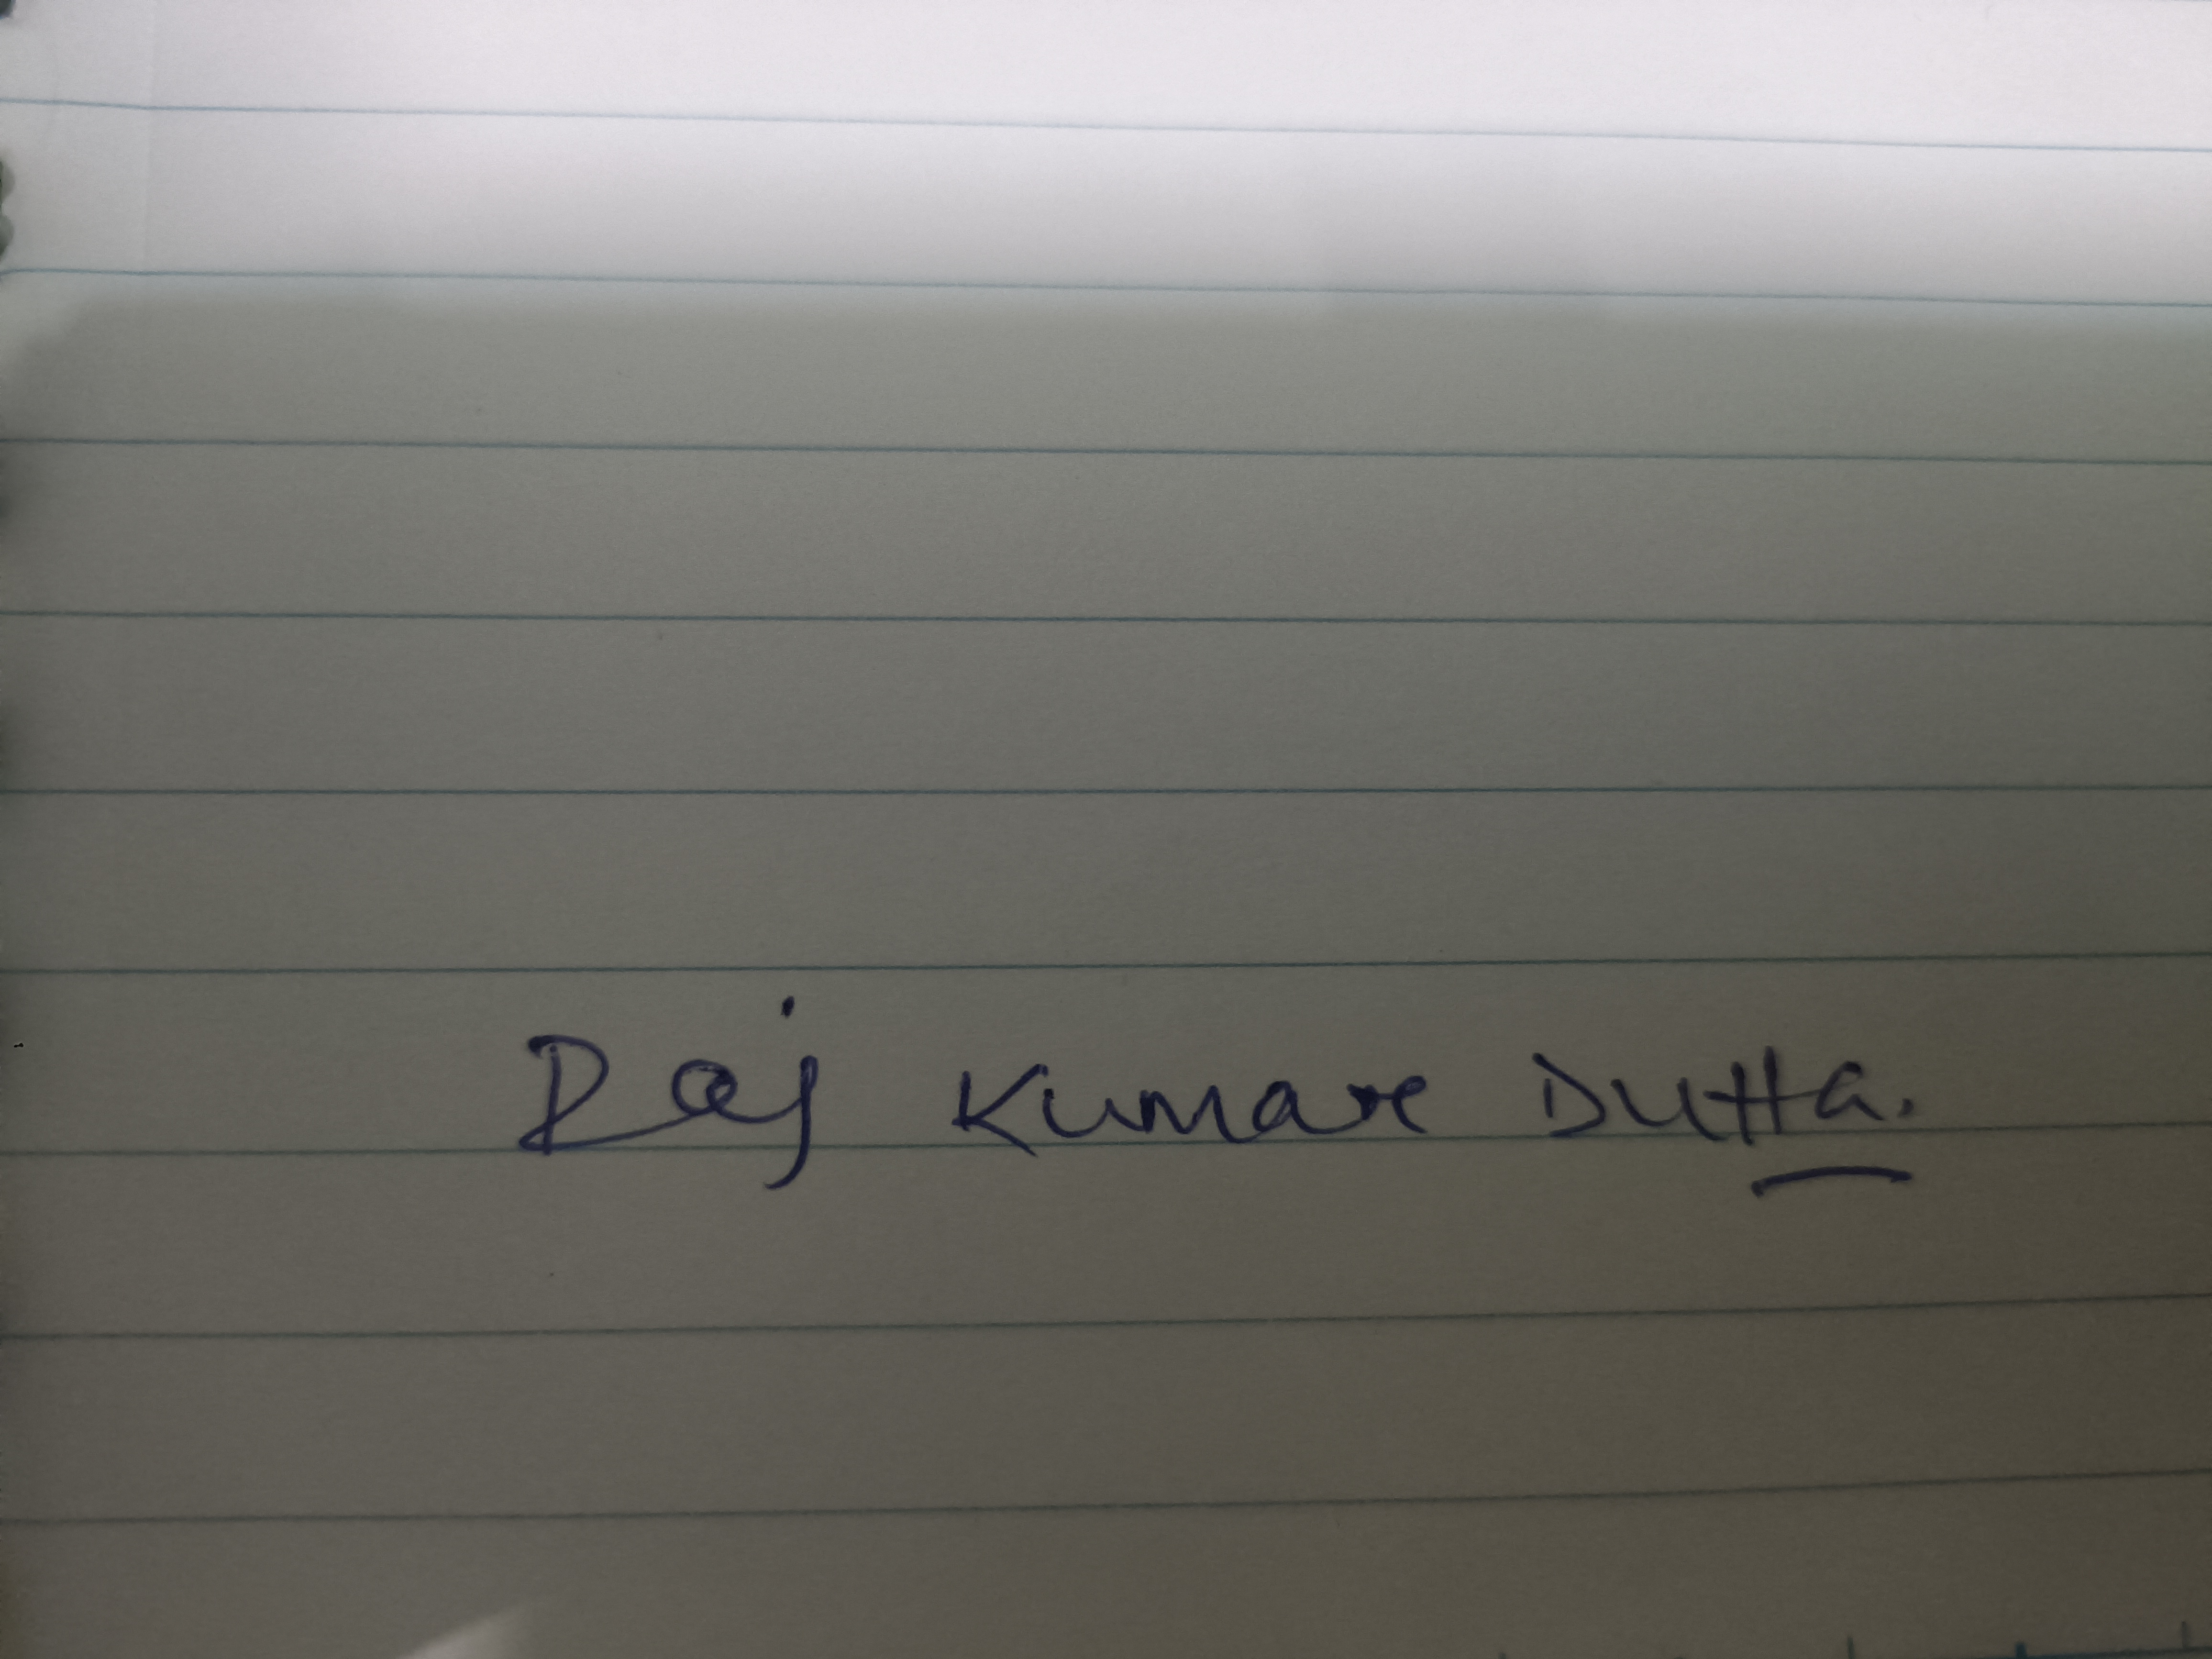 Raj Kumar Dutta.